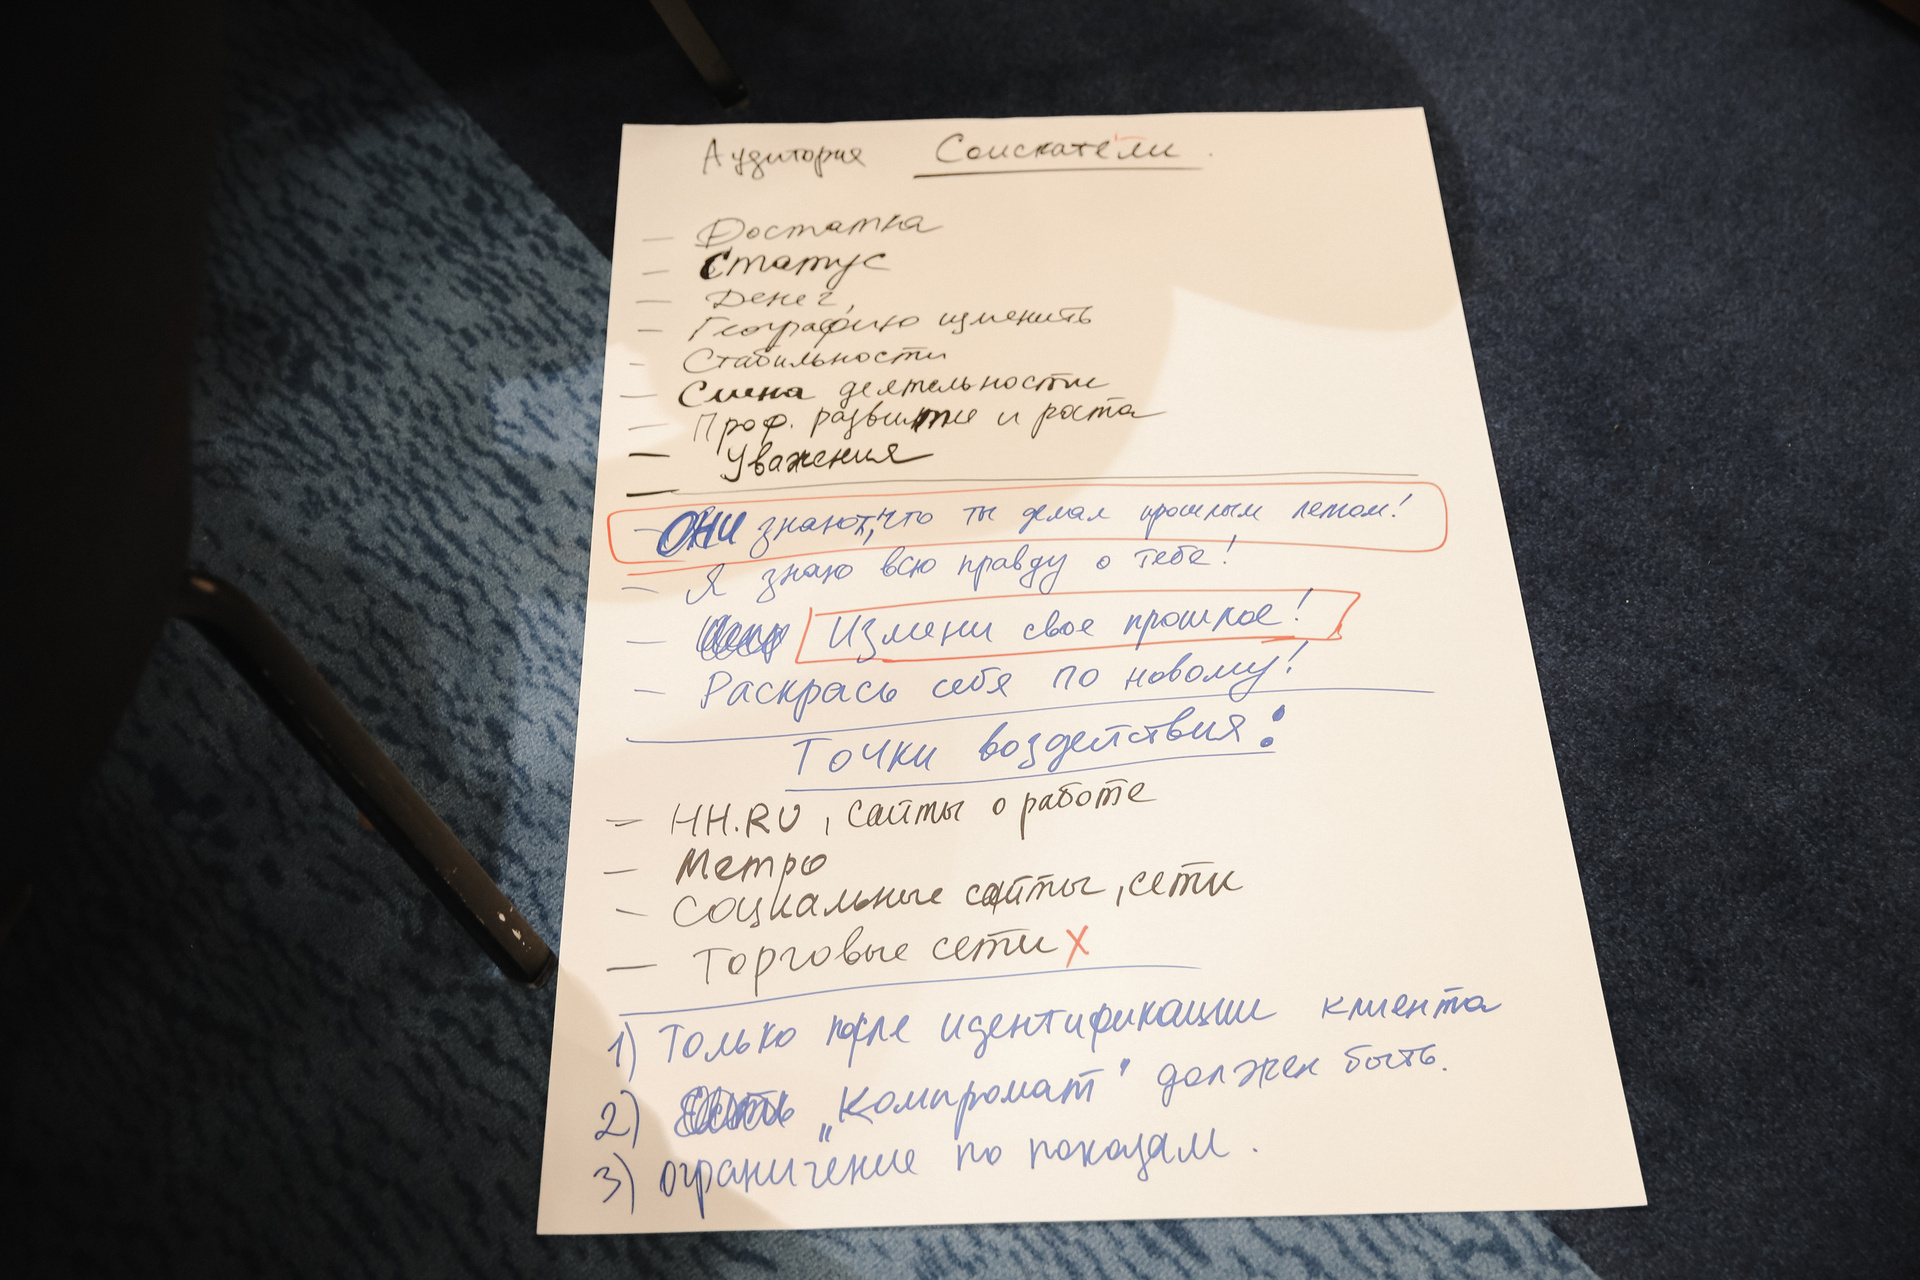 Аудитория Соискатели.
— Достатка
— Статус
— Денег,
— Географию изменить
- Стабильности
— Смена деятельности
— Проф. развития и роста
— Уважения
—
— ОНИ знают, что ты делал прошлым летом!
— Я знаю всю правду о тебе!
— Измени свое прошлое!
— Раскрась себя по новому!
Точки воздействия:
— HH.RU, сайты о работе
— Метро
— Социальные сайты, сети
— Торговые сети X
1) Только после идентификации клиента
2) „Компромат" должен быть.
3) ограничение по показам.